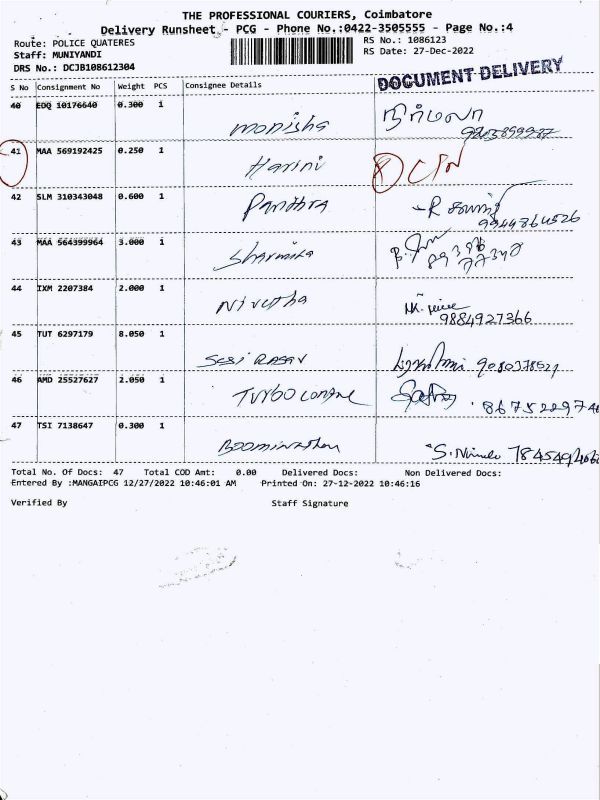 THE PROFESSIONAL COURIERS, Coimbatore
Delivery Runsheet - PCG - Phone No.:0422-3505555 - Page No.:4
Route: POLICE QUATERES
RS No.: 1086123
Staff: MUNIYANDI
RS Date: 27-Dec-2022
DRS No.: DCJB108612304
DOCUMENT DELIVERY
S No Consignment No Weight PCS Consignee Details
40 EDQ 10176640 0.300 1
monisha நிர்மலா
41 MAA 569192425 0.250 1
Harini
42 SLM 310343048 0.600 1
Pandhra
9944864526
43 MAA 564399964 3.000 1
Sharmika
44 IXM 2207384 2.000 1
Nivetha
9884927366
45 TUT 6297179 8.050 1
46 AMD 25527627 2.050 1
Turbo
47 TSI 7138647 0.300 1
Boominathan
Total No. Of Docs: 47 Total COD Amt: 0.00 Delivered Docs: Non Delivered Docs:
Entered By :MANGAIPCG 12/27/2022 10:46:01 AM Printed On: 27-12-2022 10:46:16
Verified By Staff Signature